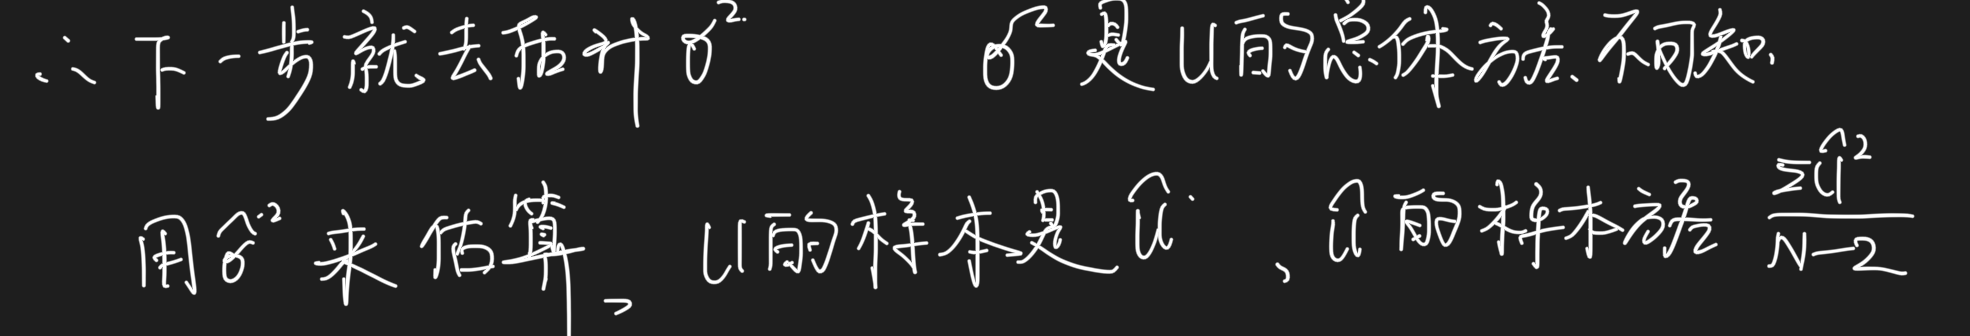 ∴下一步就去估计 σ² σ² 是 u 的总体方差、不可知,
用 σ̂² 来估算, u 的样本是 û 、û 的样本方差 Σû²/(N-2)